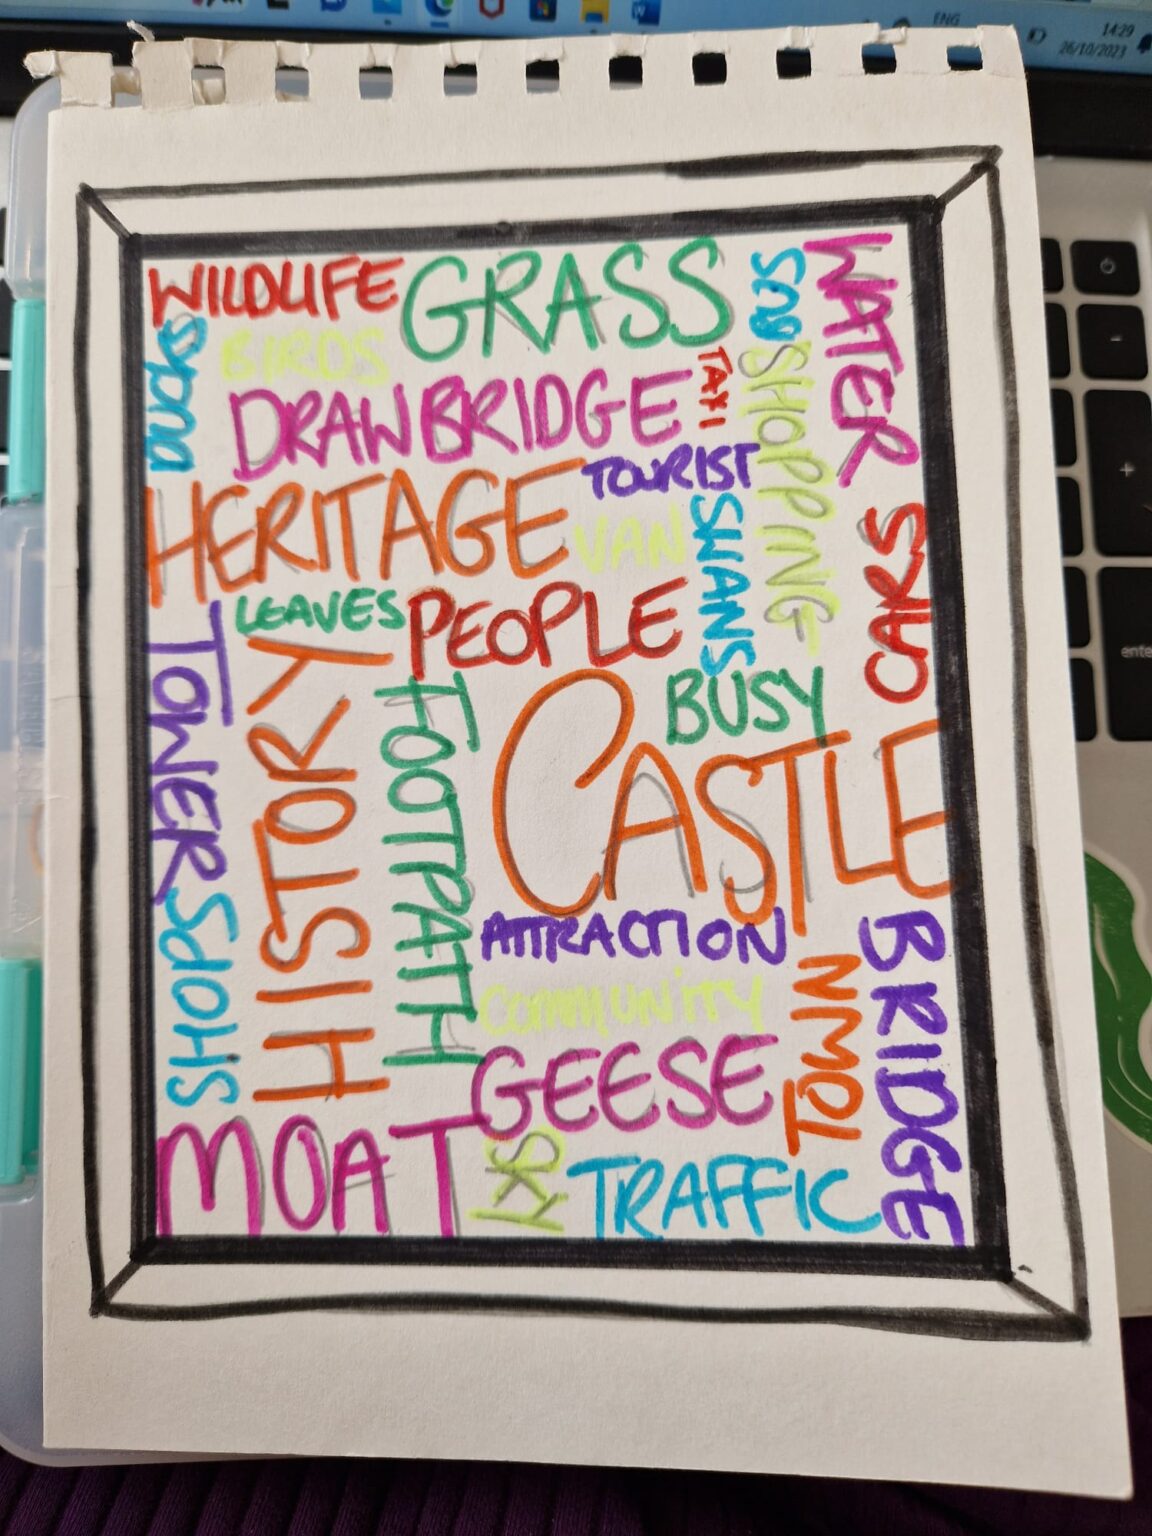 ENG
14:29
26/10/2023
WILDLIFE
GRASS
BUS
WATER
DUCKS
BIRDS
DRAWBRIDGE
TAXI
SHOPPING
HERITAGE
TOURIST
VAN
SWANS
CARS
LEAVES
PEOPLE
TOWER
HISTORY
FOOTPATH
BUSY
CASTLE
SHOPS
ATTRACTION
BRIDGE
COMMUNITY
TOWN
GEESE
MOAT
SKY
TRAFFIC
enter